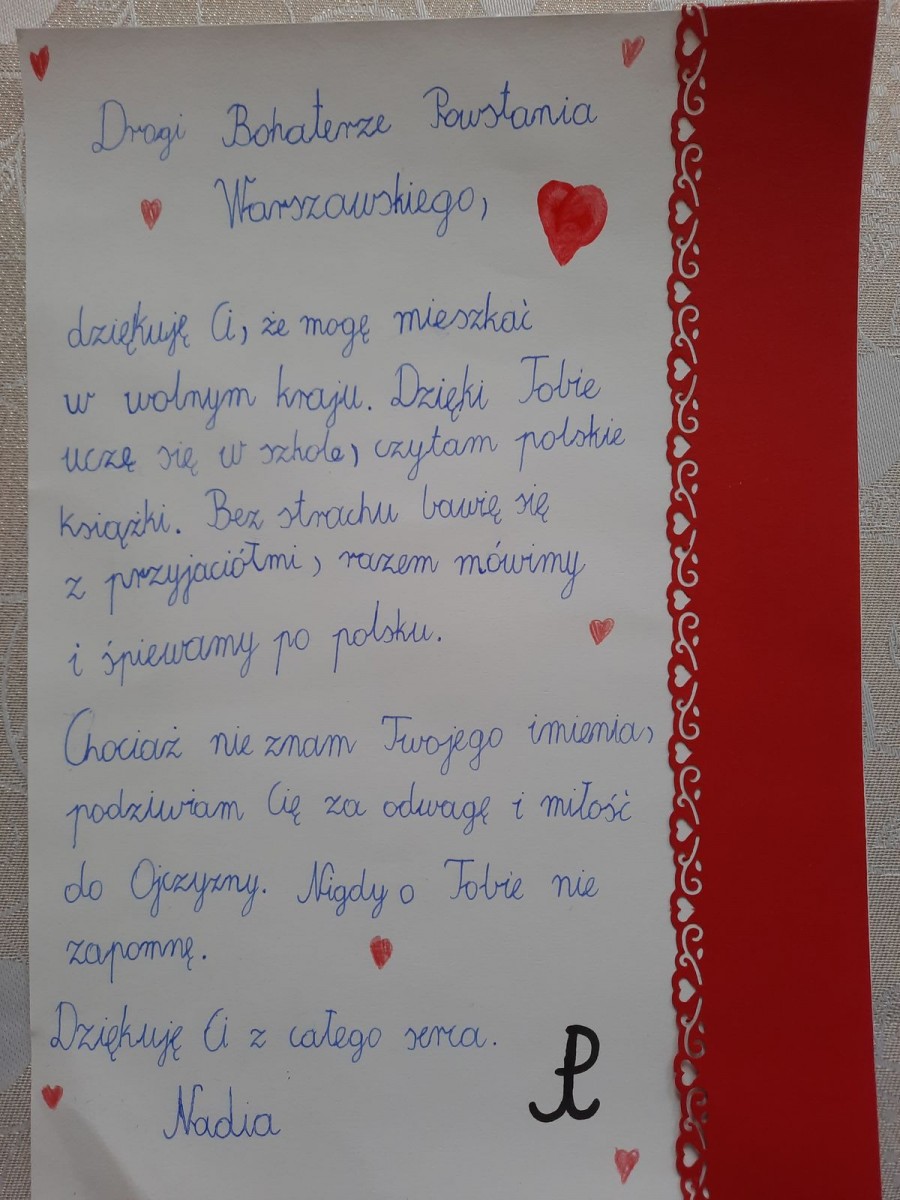 Drogi Bohaterze Powstania
Warszawskiego,
dziękuję Ci, że mogę mieszkać
w wolnym kraju. Dzięki Tobie
uczę się w szkole, czytam polskie
książki. Bez strachu bawię się
z przyjaciółmi, razem mówimy
i śpiewamy po polsku.
Chociaż nie znam Twojego imienia,
podziwiam Cię za odwagę i miłość
do Ojczyzny. Nigdy o Tobie nie
zapomnę.
Dziękuję Ci z całego serca.
Nadia